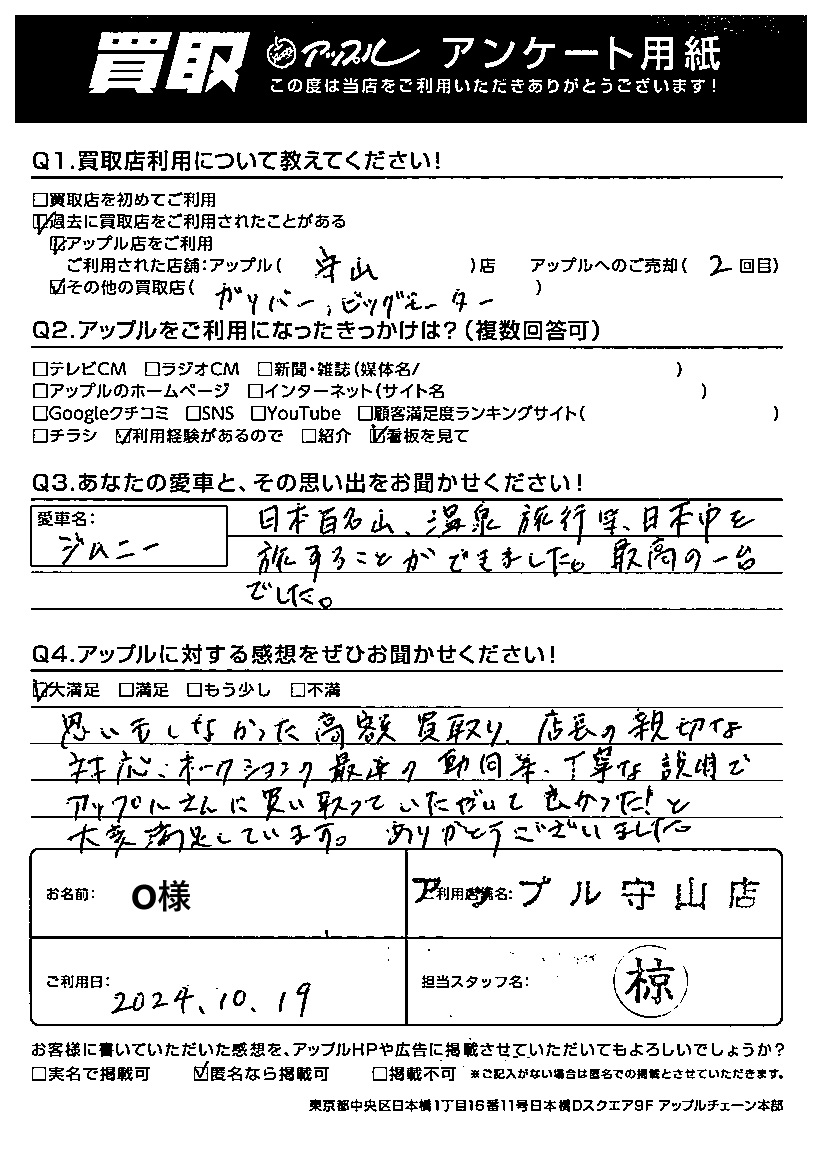 買取 アップル アンケート用紙
この度は当店をご利用いただきありがとうございます!
Q1.買取店利用について教えてください!
□買取店を初めてご利用
☑過去に買取店をご利用されたことがある
☑アップル店をご利用
ご利用された店舗:アップル( 守山 )店 アップルへのご売却( 2 回目)
☑その他の買取店( ガリバー,ビッグモーター )
Q2.アップルをご利用になったきっかけは?(複数回答可)
□テレビCM □ラジオCM □新聞・雑誌(媒体名/ )
□アップルのホームページ □インターネット(サイト名 )
□Googleクチコミ □SNS □YouTube □顧客満足度ランキングサイト( )
□チラシ ☑利用経験があるので □紹介 ☑看板を見て
Q3.あなたの愛車と、その思い出をお聞かせください!
愛車名:
ジムニー
日本百名山、温泉旅行等、日本中を
旅することができました。最高の一台
でした。
Q4.アップルに対する感想をぜひお聞かせください!
☑大満足 □満足 □もう少し □不満
思いもしなかった高額買取り、店長の親切な
対応、オークションの最新の動向等、丁寧な説明で
アップルさんに買い取っていただいて良かった!と
大変満足しています。ありがとうございました。
お名前: O様
ご利用店舗名: アップル守山店
ご利用日: 2024.10.19
担当スタッフ名: 椋
お客様に書いていただいた感想を、アップルHPや広告に掲載させていただいてもよろしいでしょうか?
□実名で掲載可 ☑匿名なら掲載可 □掲載不可 ※ご記入がない場合は匿名での掲載とさせていただきます。
東京都中央区日本橋1丁目16番11号日本橋Dスクエア9F アップルチェーン本部